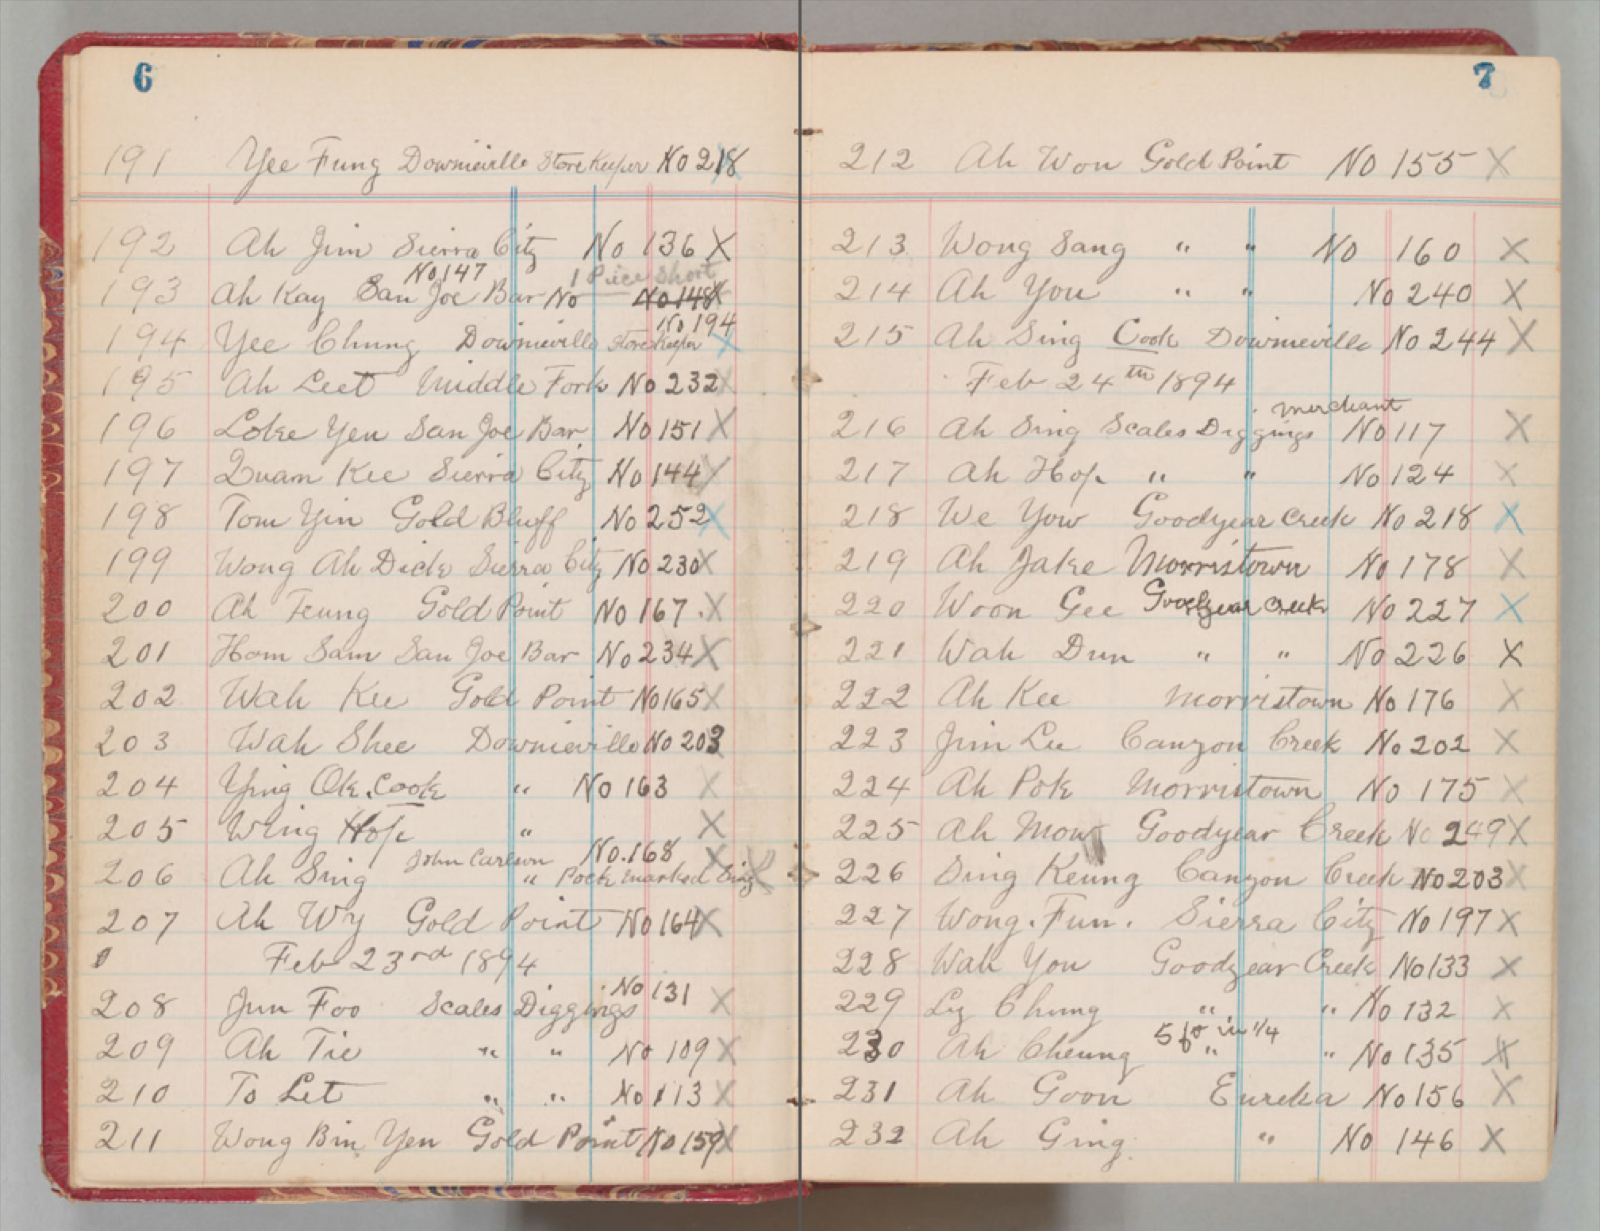 6
191 Yee Fung Downieville Store Keeper No 218
192 Ah Jim Sierra City No 136 X
No 147 1 Piece Short
193 Ah Kay San Joe Bar No No 148 X
No 194
194 Yee Chung Downieville Store Keeper X
195 Ah Leet Middle Fork No 232 X
196 Loke Yen San Joe Bar No 151 X
197 Quam Kee Sierra City No 144 X
198 Tom Yin Gold Bluff No 252 X
199 Wong Ah Dick Sierra City No 230 X
200 Ah Feung Gold Point No 167 X
201 Hom Sam San Joe Bar No 234 X
202 Wah Kee Gold Point No 165 X
203 Wah Shee Downieville No 203
204 Ying Ok. Cook " No 163 X
205 Wing Hop " X
John Carlson No. 168 X
206 Ah Sing " Pock marked Sing X
207 Ah Wy Gold Point No 164 X
Feb 23rd 1894
208 Jun Foo Scales Diggings No 131 X
209 Ah Tie " " No 109 X
210 To Let " " No 113 X
211 Wong Bin Yen Gold Point No 159 X
7
212 Ah Won Gold Point No 155 X
213 Wong Sang " " No 160 X
214 Ah You " " No 240 X
215 Ah Sing Cook Downieville No 244 X
Feb 24th 1894
merchant
216 Ah Sing Scales Diggings No 117 X
217 Ah Hop " " No 124 X
218 We Yow Goodyear Creek No 218 X
219 Ah Jake Morristown No 178 X
220 Woon Gee Goodyear Creek No 227 X
221 Wah Dun " " No 226 X
222 Ah Kee Morristown No 176 X
223 Jim Lee Canyon Creek No 202 X
224 Ah Pok Morristown No 175 X
225 Ah Mow Goodyear Creek No 249 X
226 Sing Keung Canyon Creek No 203 X
227 Wong. Fun. Sierra City No 197 X
228 Wah You Goodyear Creek No 133 X
229 Ly Chung " " No 132 X
5 fo in 1/4
230 Ah Cheung " " No 135 X
231 Ah Goon Eureka No 156 X
232 Ah Ging " No 146 X